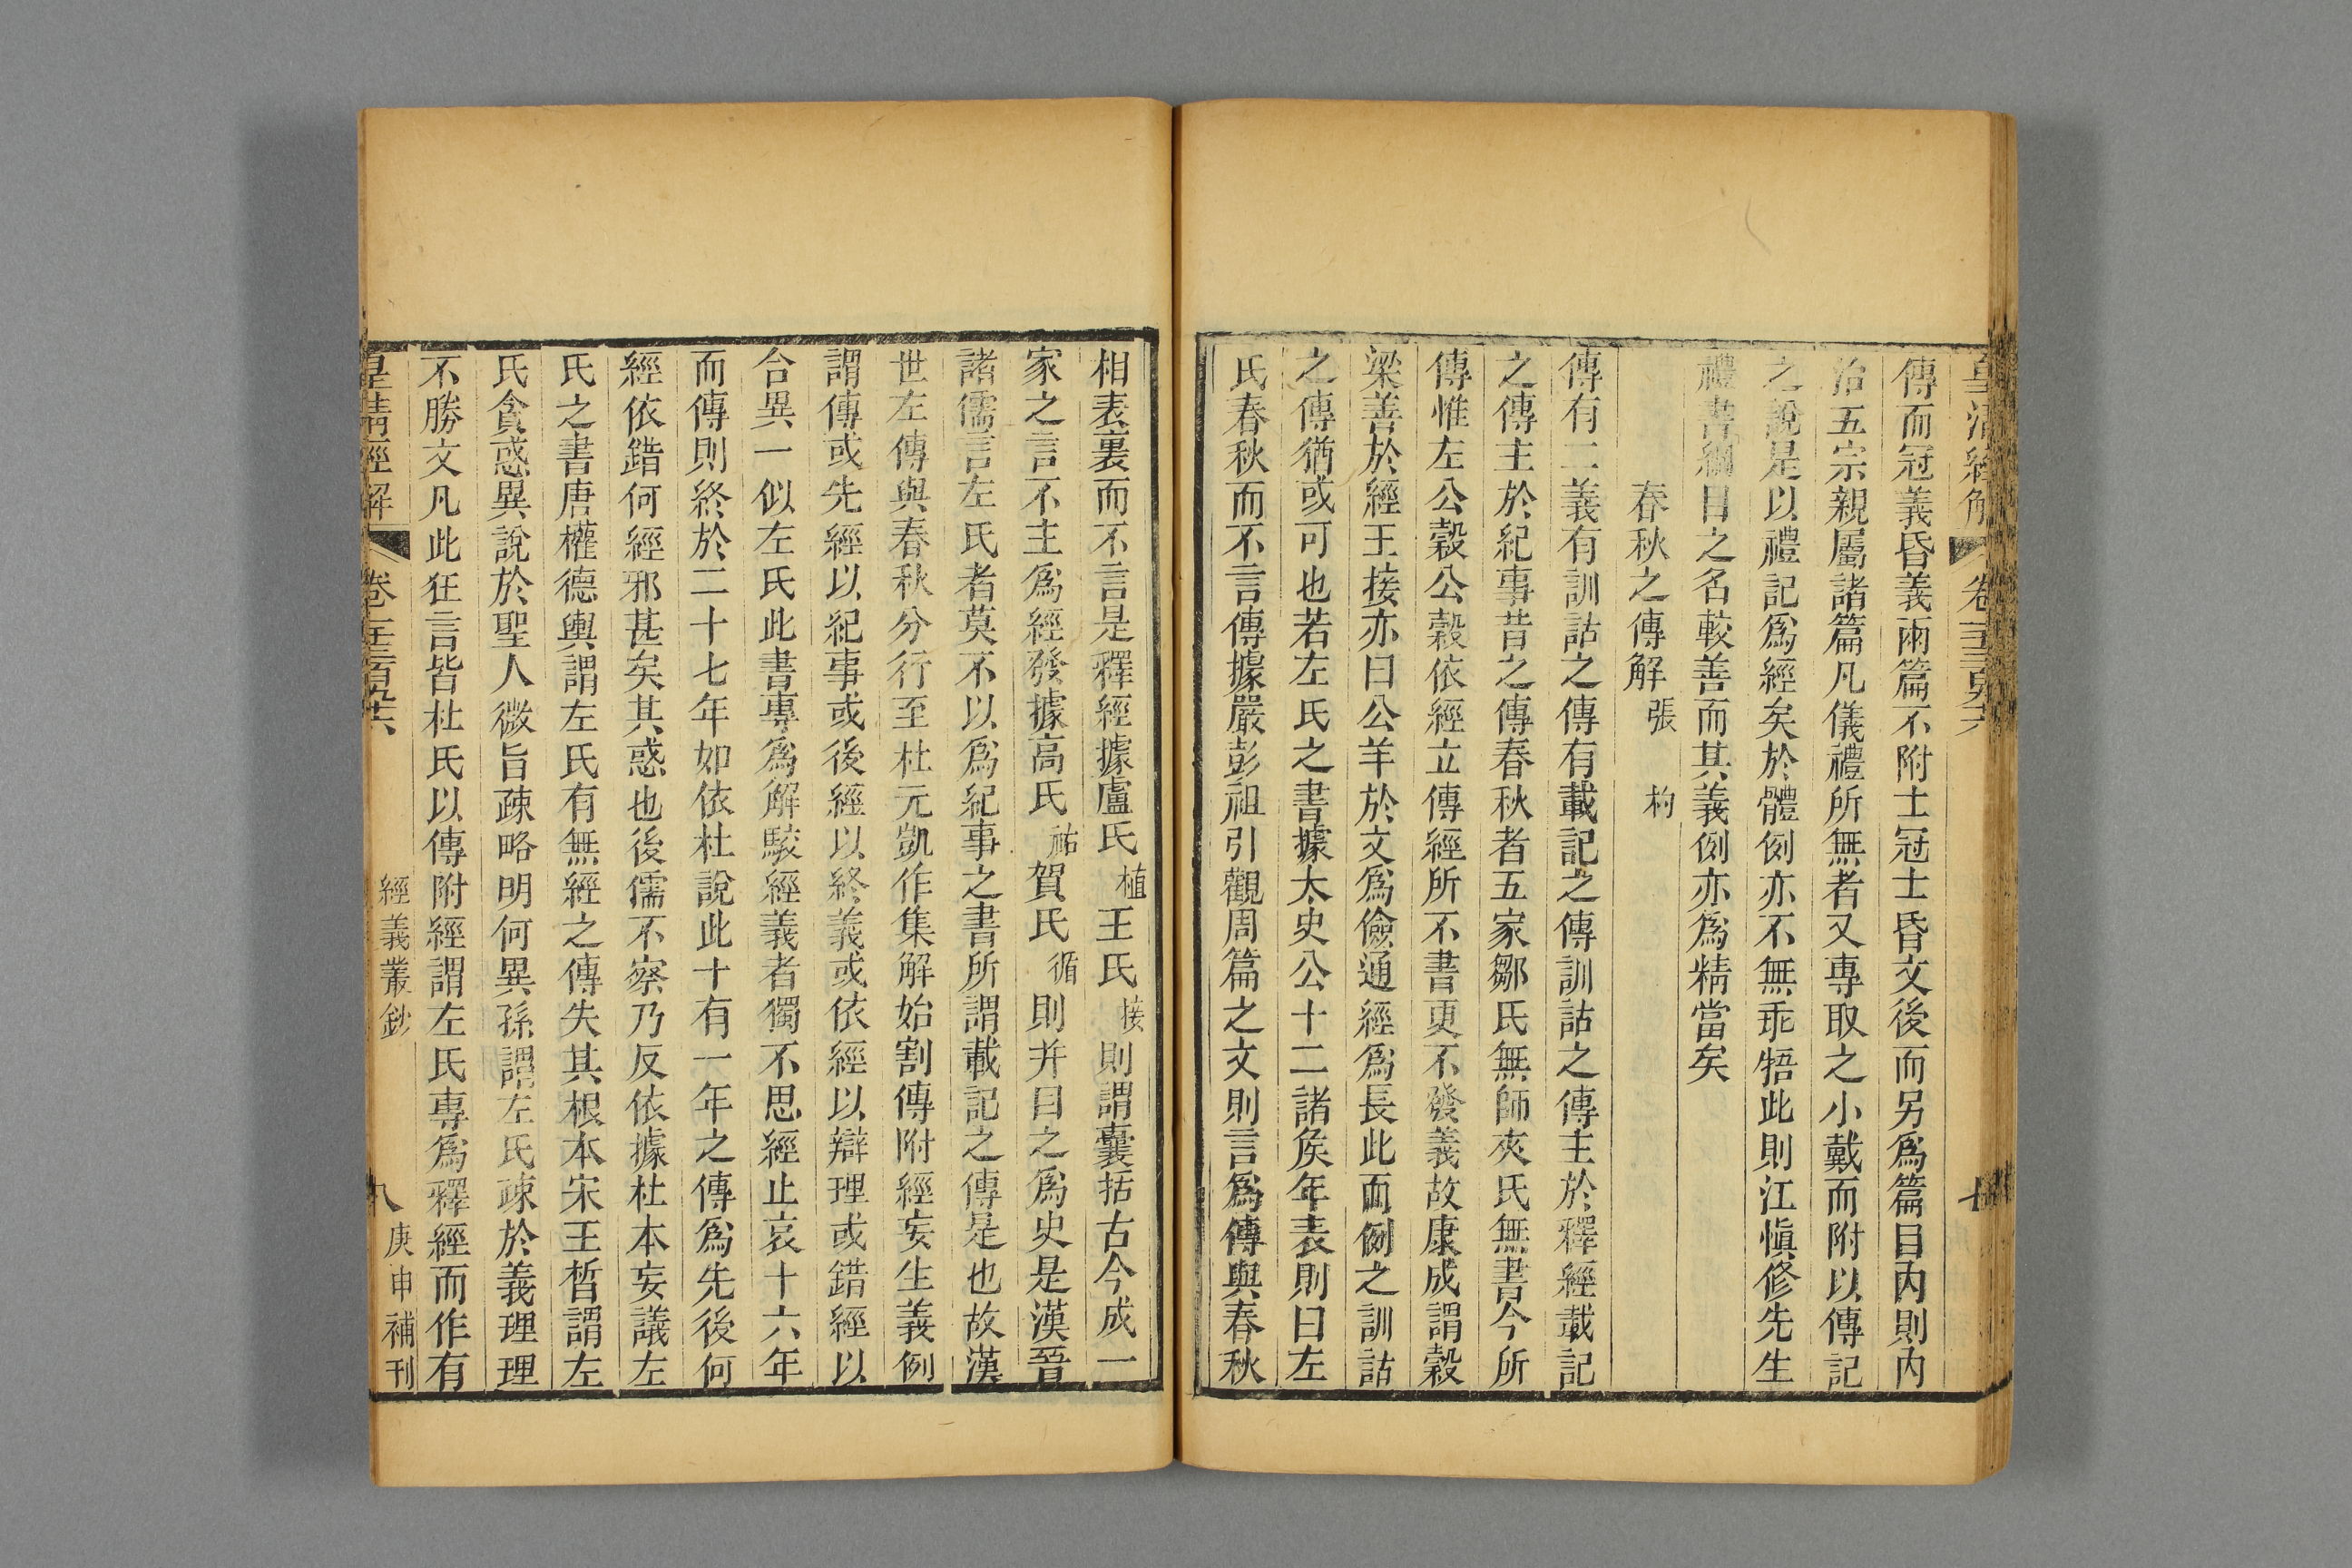 皇清經解
傳而冠義昏義兩篇不附士冠士昏文後而另爲篇目內則內
治五宗親屬諸篇凡儀禮所無者又專取之小戴而附以傳記
之說是以禮記爲經矣於體例亦不無乖牾此則江愼修先生
禮書綱目之名較善而其義例亦爲精當矣
春秋之傳解 張杓
傳有二義有訓詁之傳有載記之傳訓詁之傳主於釋經載記
之傳主於紀事昔之傳春秋者五家鄒氏無師夾氏無書今所
傳惟左公穀公穀依經立傳經所不書更不發義故康成謂穀
梁善於經王接亦曰公羊於文爲儉通經爲長此而例之訓詁
之傳猶或可也若左氏之書據太史公十二諸矦年表則曰左
氏春秋而不言傳據嚴彭祖引觀周篇之文則言爲傳與春秋
相表裏而不言是釋經據盧氏植王氏接則謂囊括古今成一
家之言不主爲經發據高氏祐賀氏循則并目之爲史是漢晉
諸儒言左氏者莫不以爲紀事之書所謂載記之傳是也故漢
世左傳與春秋分行至杜元凱作集解始割傳附經妄生義例
謂傳或先經以紀事或後經以終義或依經以辯理或錯經以
合異一似左氏此書專爲解駮經義者獨不思經止哀十六年
而傳則終於二十七年如依杜說此十有一年之傳爲先後何
經依錯何經邪甚矣其惑也後儒不察乃反依據杜本妄議左
氏之書唐權德輿謂左氏有無經之傳失其根本宋王晳謂左
氏貪惑異說於聖人微旨疎略明何異孫謂左氏疎於義理理
不勝文凡此狂言皆杜氏以傳附經謂左氏專爲釋經而作有
皇清經解 經義叢鈔 八 庚申補刊